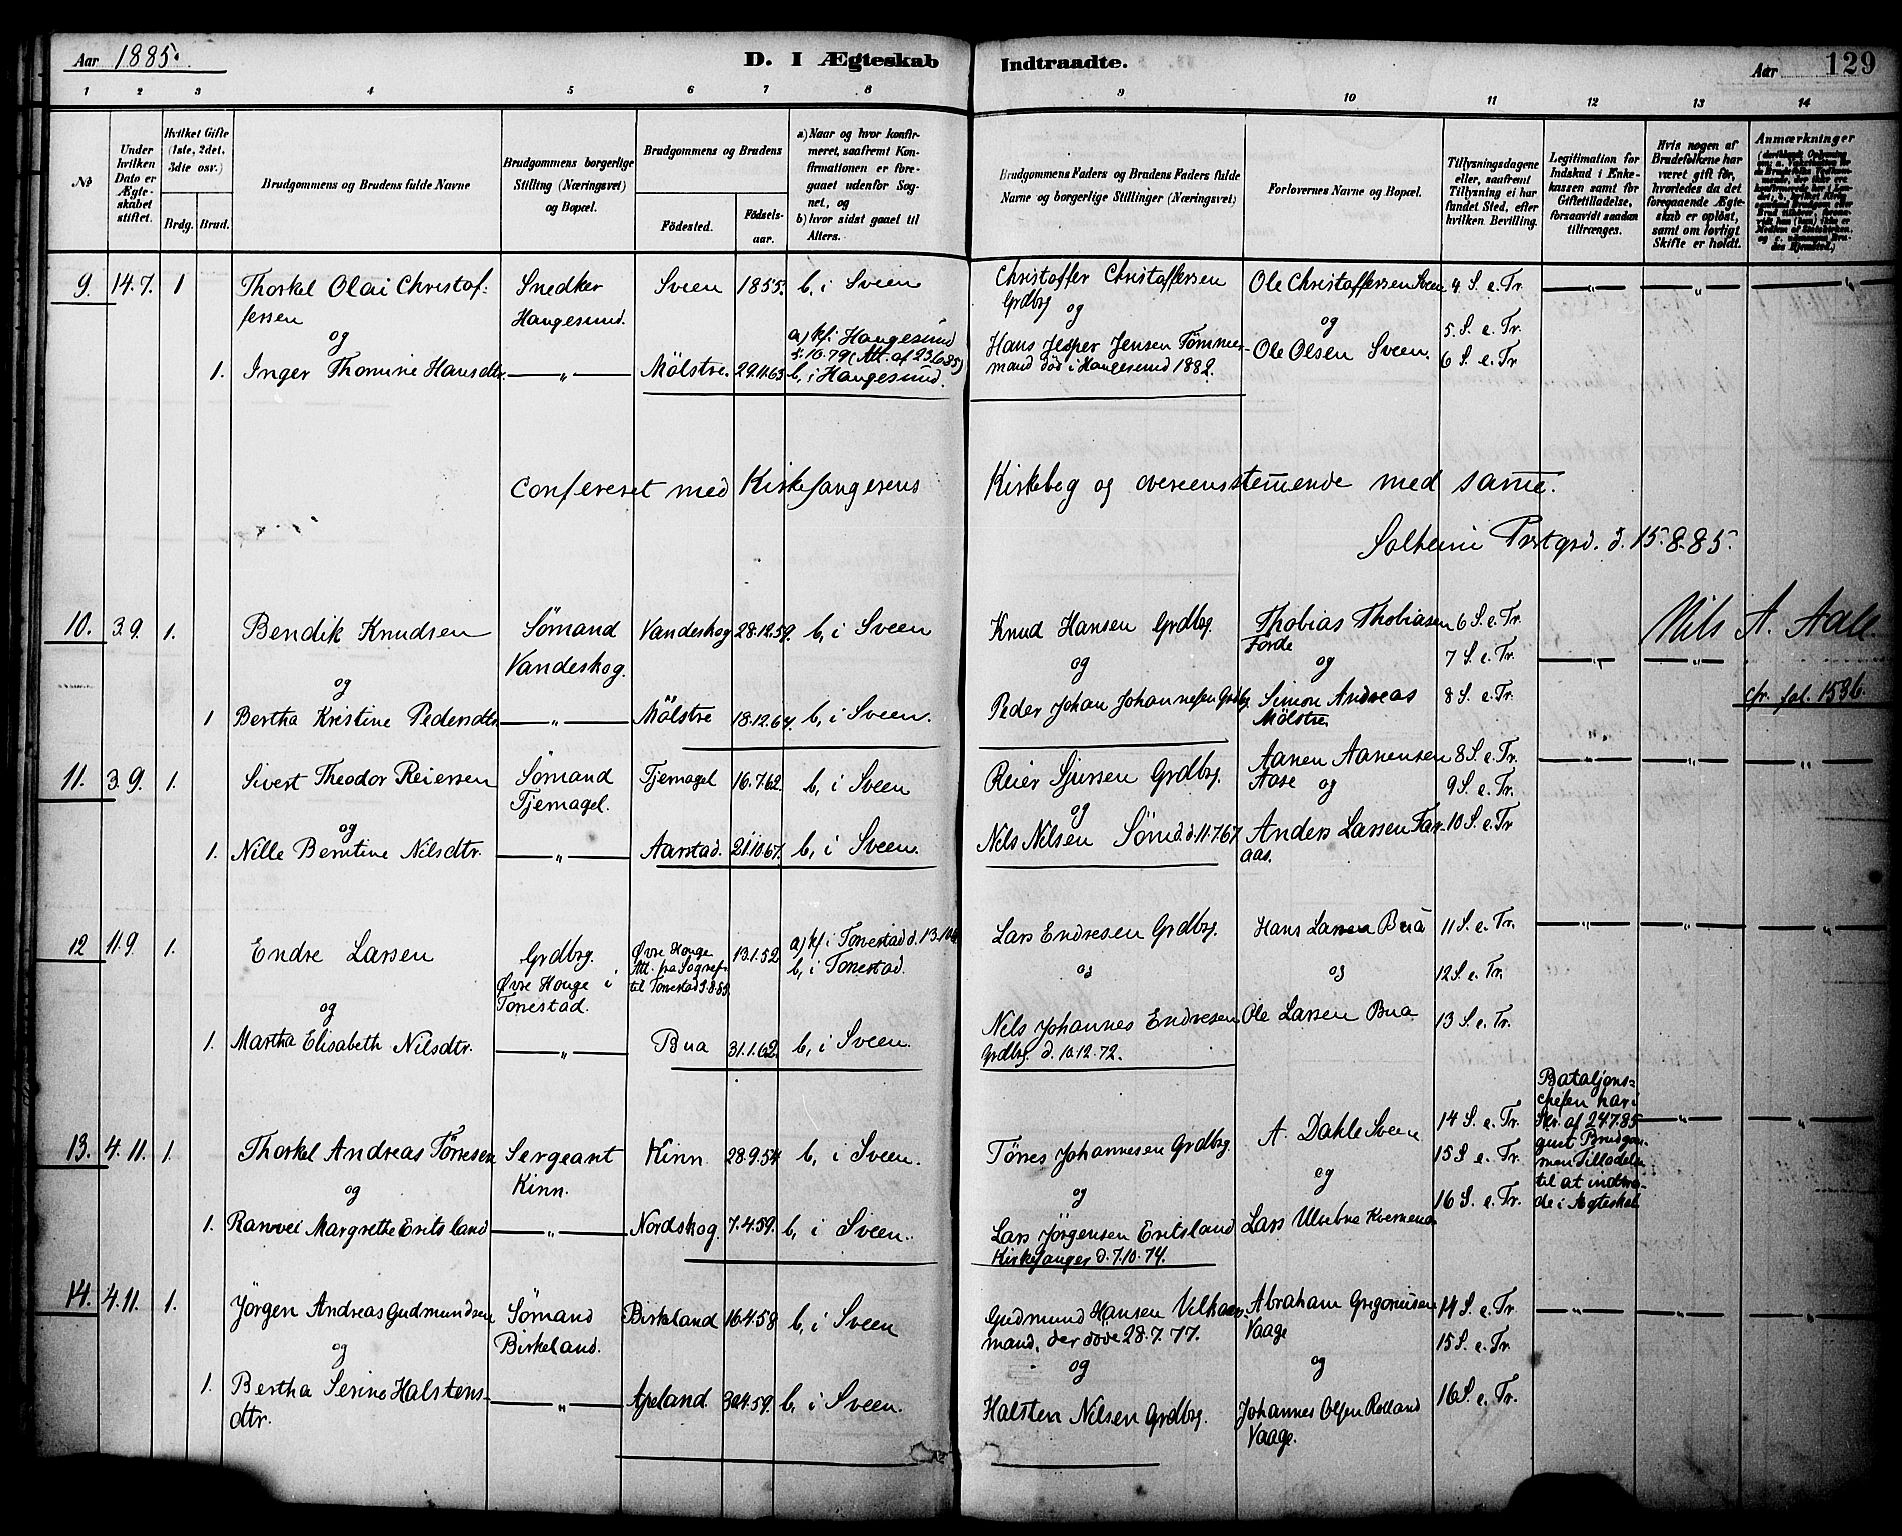 Aar 1885.
D. I Ægteskab Indtraadte.
Aar 129
1 2 3 4 5 6 7 8 9 10 11 12 13 14
№
Under hvilken Dato er Ægteskabet stiftet.
Hvilket Gifte (1ste, 2det, 3dte osv.)
Brdg. Brud.
Brudgommens og Brudens fulde Navne
Brudgommens borgerlige Stilling (Næringsvei) og Bopæl.
Brudgommens og Brudens
Fødested.
Fødselsaar.
a) Naar og hvor konfirmeret, saafremt Konfirmationen er foregaaet udenfor Sognet, og
b) hvor sidst gaaet til Alters.
Brudgommens Faders og Brudens Faders fulde Navne og borgerlige Stillinger (Næringsvei)
Forlovernes Navne og Bopæl.
Tillysningsdagene eller, saafremt Tillysning ei har fundet Sted, efter hvilken Bevilling.
Legitimation for Indskud i Enkekassen samt for Giftetilladelse, forsaavidt saadan tiltrænges.
Hvis nogen af Brudefolkene har været gift før, hvorledes da det foregaaende Ægteskab er opløst, samt om lovligt Skifte er holdt.
Anmærkninger
9. 14.7. 1 Thorkel Olai Christoffersen Snedker Haugesund. Sveen 1855. b, i Sveen Christoffer Christoffersen Grdbrg Ole Christoffersen Sveen 4 S. e. Tr. — " — — " — — " —
og og og 5. S. e. Tr.
1. Inger Thomine Hansdtr. — " — Mølstre. 29.11.63 a) kf. i Haugesund 5.10.79 (Att. af 23.6.85) b, i Haugesund. Hans Jesper Jensen Tømmermand død i Haugesund 1882. Ole Olsen Sveen. 6 S. e. Tr
Confereret med Kirkesangerens Kirkebog og overeensstemmende med samme.
Solheim Prstgrd. d. 15.8.85.
Nils A. Aall.
10. 3.9. 1. Bendik Knudsen Sømand Vandeskog. Vandeskog 28.12.59. b, i Sveen Knud Hansen Grdbrg. Thobias Thobiasen Førde 6 S. e. Tr.
og og og 7 S. e. Tr. — " — — " —
1 Bertha Kristine Pedersdtr. — " — Mølstre 18.12.64. b, i Sveen. Peder Johan Johannesen Grdbg. Simon Andreas Mølstre 8 S. e. Tr. cfr. fol. 153 6.
11. 3.9. 1. Sivert Theodor Reiersen Sømand Tjernagel. Tjernagel 16.7.62. b, i Sveen Reier Sjursen Grdbrg. Aanen Aanensen Aase 8 S. e. Tr. — " — — " — — " —
og og og 9 S. e. Tr.
1. Nille Berntine Nilsdtr. — " — Aarstad. 21.10.67. b, i Sveen. Nils Nilsen Sømd. d. 11.7.67 Anders Larsen Faraas. 10 S. e. Tr
12 11.9 1. Endre Larsen Grdbrg. Øvre Hauge i Tonestad. Øvre Hauge Att. fra Sognepr. til Tonestad 3.8.85. 13.1.52 a) kf. i Tonestad d. 13.10 b, i Tonestad. Lars Endresen Grdbrg. Hans Larsen Bua 11 S. e. Tr. — " — — " — — " —
og og og 12 S. e. Tr.
1. Martha Elisabeth Nilsdtr. — " — Bua 31.1.62. b, i Sveen. Nels Johannes Endresen Grdbrg. d. 10.12.72. Ole Larsen Bua 13 S. e. Tr.
13. 4.11. 1. Thorkel Andreas Tørresen Sergeant Kinn. Kinn 28.9.54 b, i Sveen. Tönes Johannesen Grdbrg. A. Dahle Sveen 14 S. e. Tr. Bataljonschefen har i Skr. af 24.7.85 givet Brudgommen Tilladelse til at indtræde i Ægteskab — " — — " —
og og og 15 S. e. Tr.
1. Ranvei Margrethe Eritsland — " — Nordskog. 7.4.59. b, i Sveen. Lars Jørgensen Eritsland Kirkesanger d. 7.10.74. Lars Ulvebne Kvernenæs 16 S. e. Tr.
14. 4.11. 1. Jørgen Andreas Gudmundsen Sømand Birkeland. Birkeland 16.4.58 b, i Sveen Gudmund Hansen Vilkaarmand, der døde 28.7.77. Abraham Gregoriusen Vaage 14 S. e. Tr — " — — " — — " —
og og og 15 S. e. Tr.
1. Bertha Serine Halstensdtr. — " — Apeland. 30.4.59. b, i Sveen. Halsten Nilsen Grdbrg. Johannes Olsen Rolland Vaage. 16 S. e. Tr.